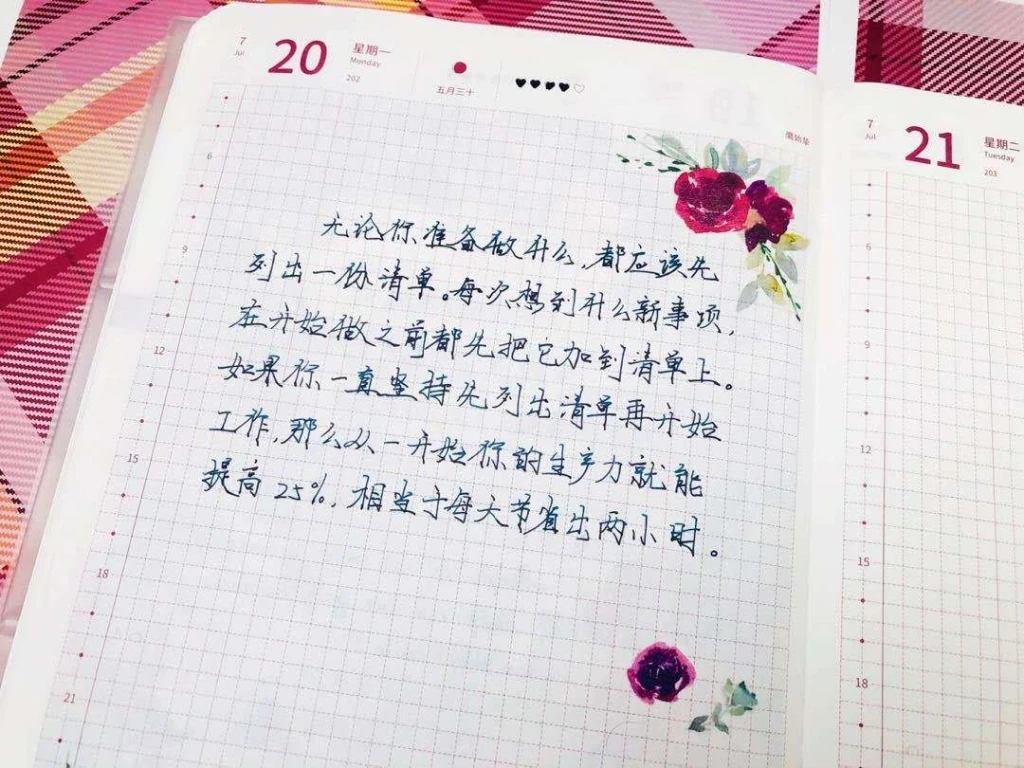 7
Jul
20
星期一
Monday
202
五月三十
无论你准备做什么,都应该先
列出一份清单。每次想到什么新事项,
在开始做之前都先把它加到清单上。
如果你一直坚持先列出清单再开始
工作,那么从一开始你的生产力就能
提高25%,相当于每天节省出两小时。
6
9
12
15
18
21
7
Jul
21
星期二
Tuesday
203
6
9
12
15
18